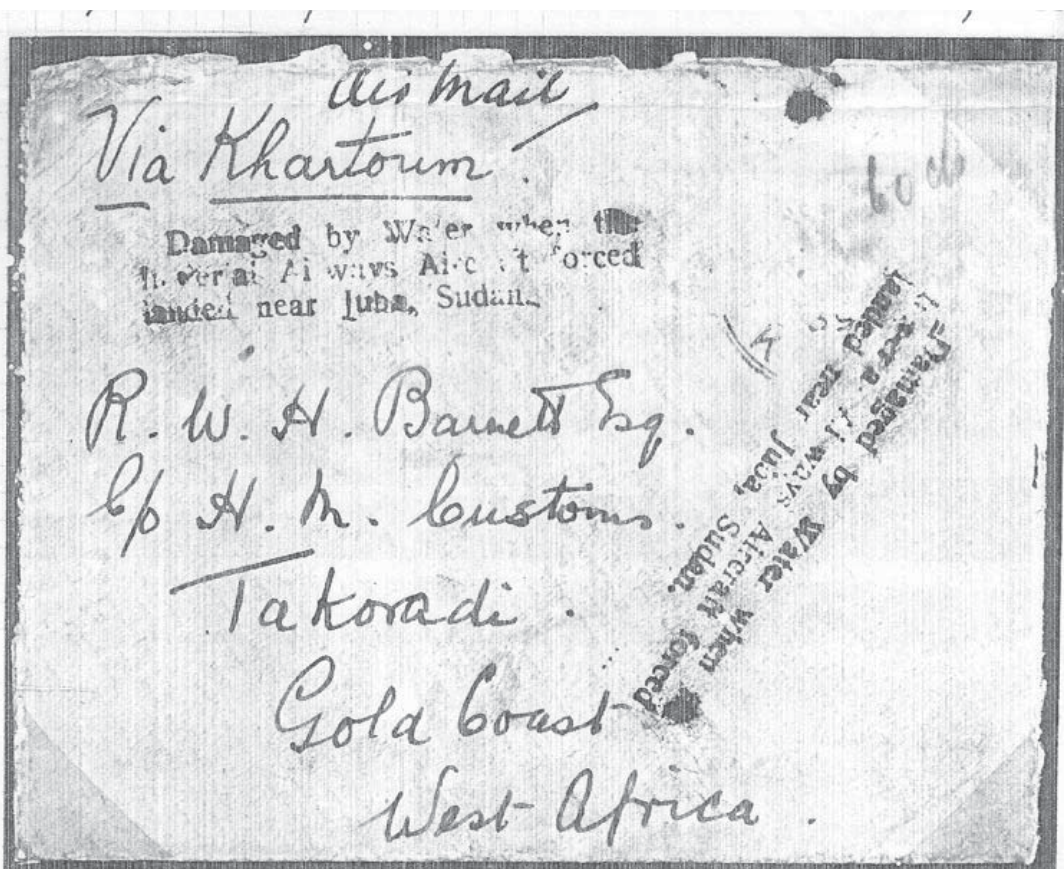 Air Mail
Via Khartoum.
Damaged by Water when the
Imperial Airways Aircraft forced
landed near Juba, Sudan.
R. W. H. Barnett Esq.
C/o H. M. Customs.
Takoradi.
Gold Coast
West Africa.
Damaged by Water when
Imperial Airways Aircraft forced
landed near Juba, Sudan.